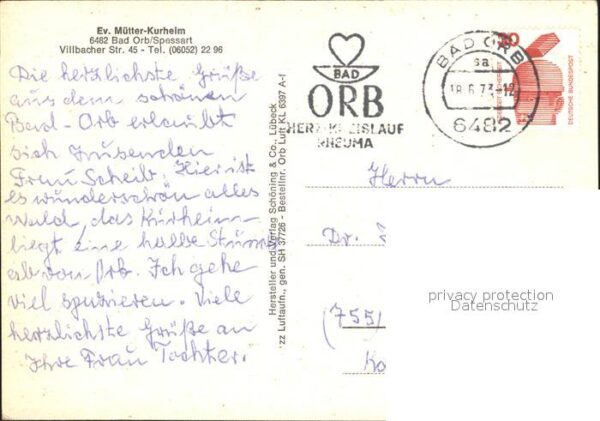 Ev. Mütter-Kurheim
6482 Bad Orb/Spessart
Villbacher Str. 45 - Tel. (06052) 22 96
Die herzlichste Grüße
aus dem schönen
Bad-Orb erlaubt
sich zusenden
Frau Scheib. Hier ist
es wunderschön alles
Wald, das Kurheim
liegt eine halbe Stunde
ab von Orb. Ich gehe
viel spazieren. Viele
herzlichste Grüße an
Ihre Frau Tochter.
Hersteller und Verlag Schöning & Co., Lübeck
Luftaufn., gen. SH 37726 - Bestellnr. Orb Luft KL 6397 A-f
BAD
ORB
HERZ-KREISLAUF
RHEUMA
BAD ORB
sa
18.6.73-12
6482
DEUTSCHE BUNDESPOST
Herrn
Dr.
(7551)
privacy protection
Datenschutz